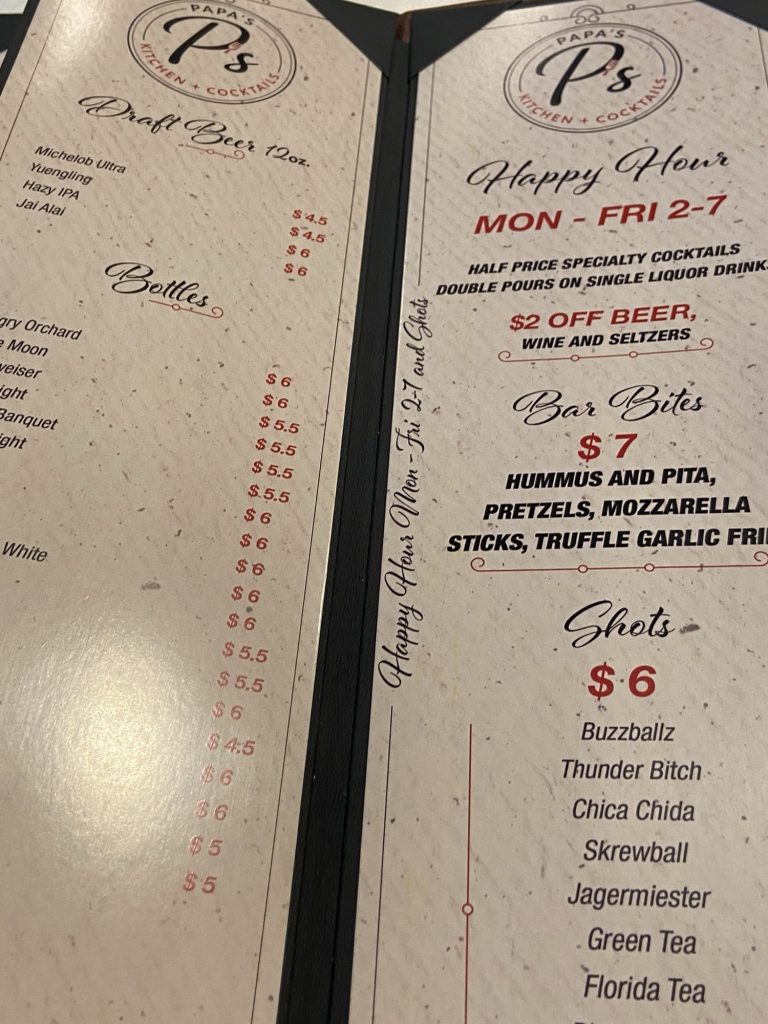 PAPA'S
P's
KITCHEN + COCKTAILS
Draft Beer 12oz.
Michelob Ultra
Yuengling
Hazy IPA
Jai Alai
$ 4.5
$ 4.5
$ 6
$ 6
Bottles
gry Orchard
Moon
weiser
ight
Banquet
ght
White
$ 6
$ 6
$ 5.5
$ 5.5
$ 5.5
$ 5.5
$ 6
$ 6
$ 6
$ 6
$ 6
$ 5.5
$ 5.5
$ 6
$ 4.5
$ 6
$ 6
$ 5
$ 5
Happy Hour Mon - Fri 2-7 and Shots
PAPA'S
P's
KITCHEN + COCKTAILS
Happy Hour
MON - FRI 2-7
HALF PRICE SPECIALTY COCKTAILS
DOUBLE POURS ON SINGLE LIQUOR DRINK
$2 OFF BEER,
WINE AND SELTZERS
Bar Bites
$ 7
HUMMUS AND PITA,
PRETZELS, MOZZARELLA
STICKS, TRUFFLE GARLIC FRI
Shots
$ 6
Buzzballz
Thunder Bitch
Chica Chida
Skrewball
Jagermiester
Green Tea
Florida Tea